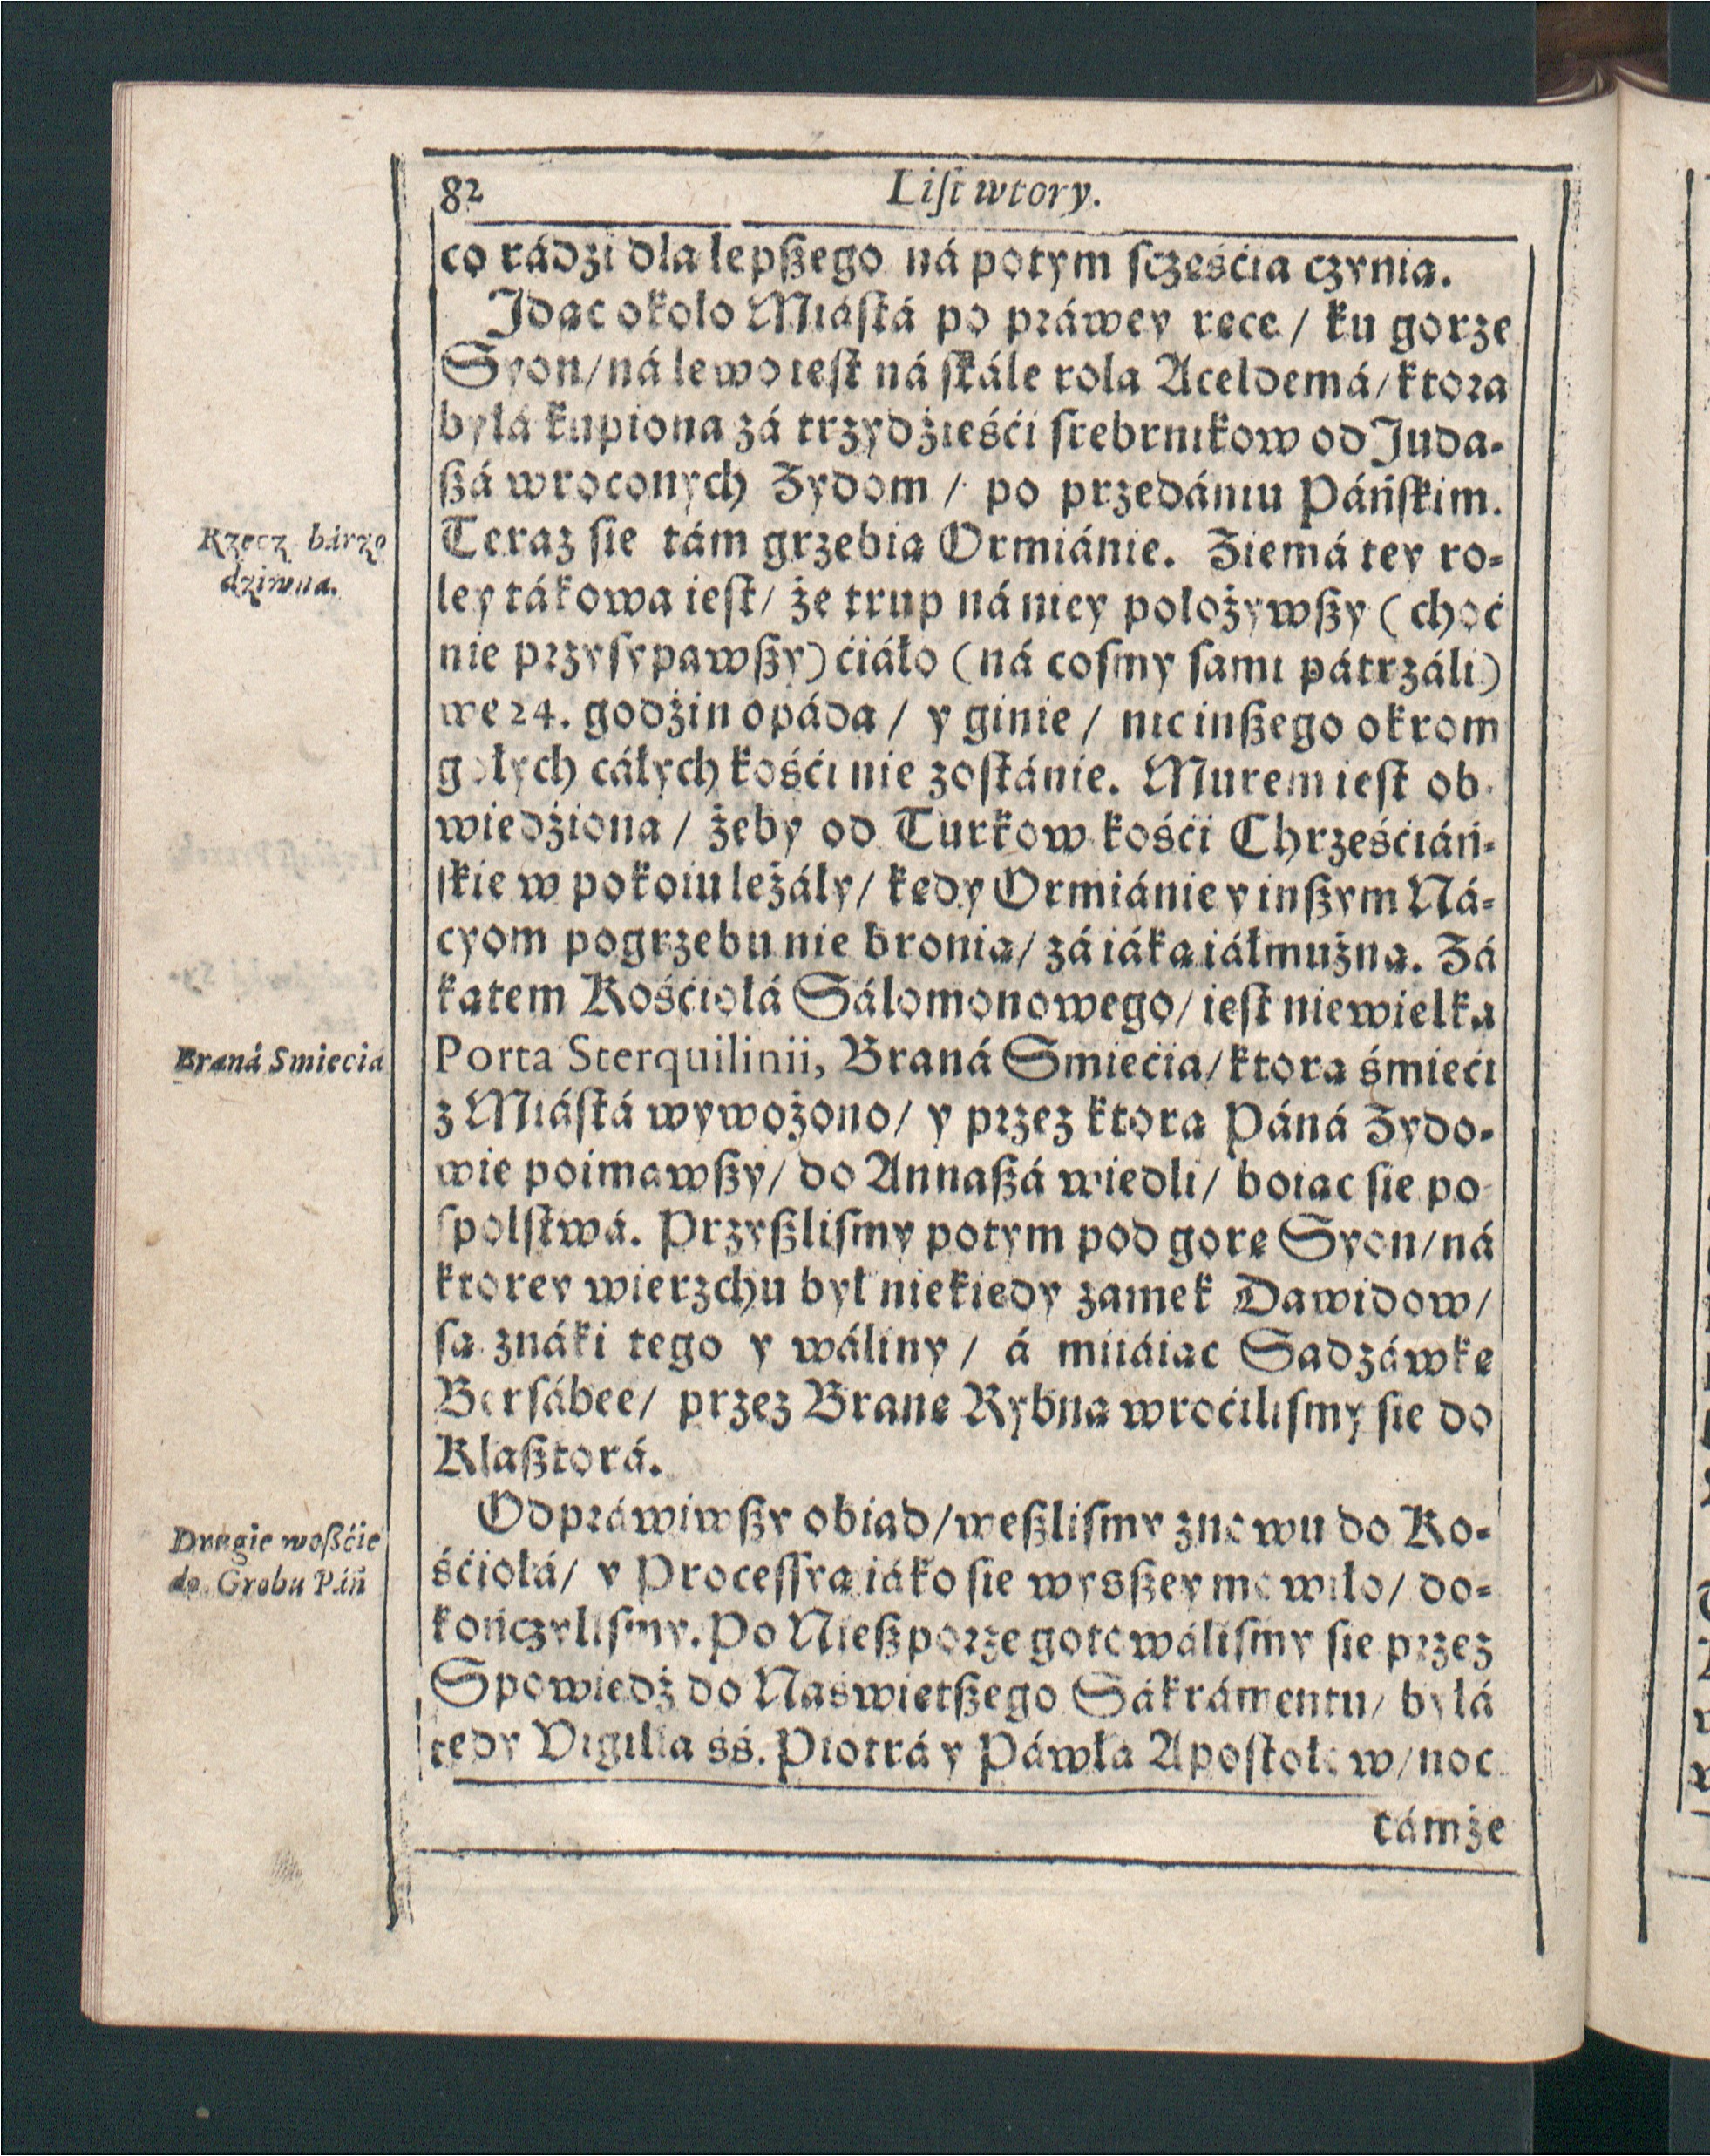 82 Liſt wtory.
co rádzi dla lepßego ná potym ſczęśćia czynią.
Idąc około Miáſtá po práwey ręce / ku gorze
Syon / ná lewo ieſt ná ſkále rola Aceldemá / ktora
byłá kupiona zá trzydźieśći ſrebrnikow od Juda-
ßá wroconych Zydom / po przedániu Páńſkim.
Rzecz bárzo
dziwna.
Teraz ſie tám grzebią Ormiánie. Ziemá tey ro-
ley tákowa ieſt / że trup ná niey położywßy (choć
nie przyſypawßy) ćiáło (ná coſmy ſami pátrzáli)
we 24. godźin opáda / y ginie / nic inßego okrom
gołych cáłych kośći nie zoſtánie. Murem ieſt ob-
wiedźiona / żeby od Turkow kośći Chrześćiáń-
ſkie w pokoiu leżáły / kędy Ormiánie y inßym Ná-
cyom pogrzebu nie bronią / zá iáką iáłmużną. Zá
kątem Kośćiołá Sálomonowego / ieſt niewielka
Braná Smiecia
Porta Sterquilinii, Braná Smiećia / ktorą śmieći
z Miáſtá wywożono / y przez ktorą Páná Zydo-
wie poimawßy / do Annaßá wiedli / boiąc ſie po-
ſpolſtwá. Przyßliſmy potym pod gorę Syon / ná
ktorey wierzchu był niekiedy zamek Dawidow /
ſą znáki tego y wáliny / á miiáiąc Sadzáwkę
Berſábee / przez Bramę Rybną wroćiliſmy ſie do
Klaßtorá.
Drugie woßćie
do Grobu Páń
Odpráwiwßy obiad / weßliſmy znowu do Ko-
śćiołá / y Proceſſyą iáko ſie wyſßey mowiło / do-
kończyliſmy. Po Nießporze gotowáliſmy ſie przez
Spowiedź do Naświetßego Sákrámentu / byłá
tedy Vigilia śś. Piotrá y Páwła Apoſtołow / noc
támże